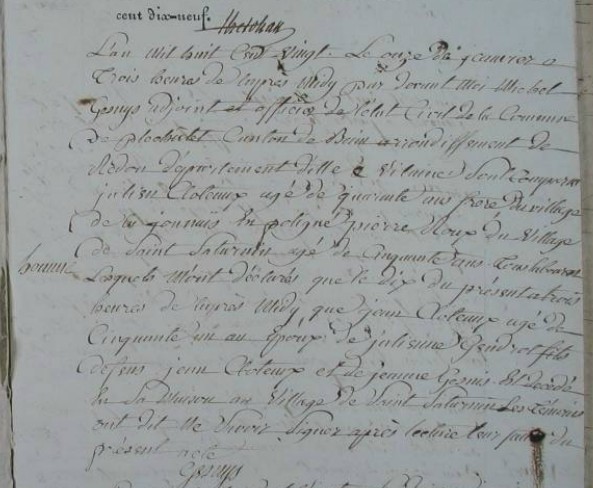 cent dix-neuf.
L'an mil huit Cent vingt. Le onze de janvier a
Trois heures de lapres Midy par devant Moi Michel
Gesnys adjoint et officie de letat Civil de la Commune
de plechatel Canton de Bain arrondissement de
Redon departement dille e vilaine Sont Comparu
julien Cloteaux agé de quarante ans frere du village
de la jonnais En poligné pierre Roux du village
de Saint Saturnin agé de Cinquante ans Tous laboureurs
homme
Lesquels M'ont déclarés que le dix du présent a trois
heures de lapres Midy que jean Cloteaux agé de
Cinquante un an Epoux de julienne Gendrot fils
defens jean Cloteaux et de jeanne Gesnis Est decedé
En Sa Maison au village de Saint Saturnin Les Témoins
ont dit Ne Savoir Signer après lecture leur faite du
présent acte
Gesnys